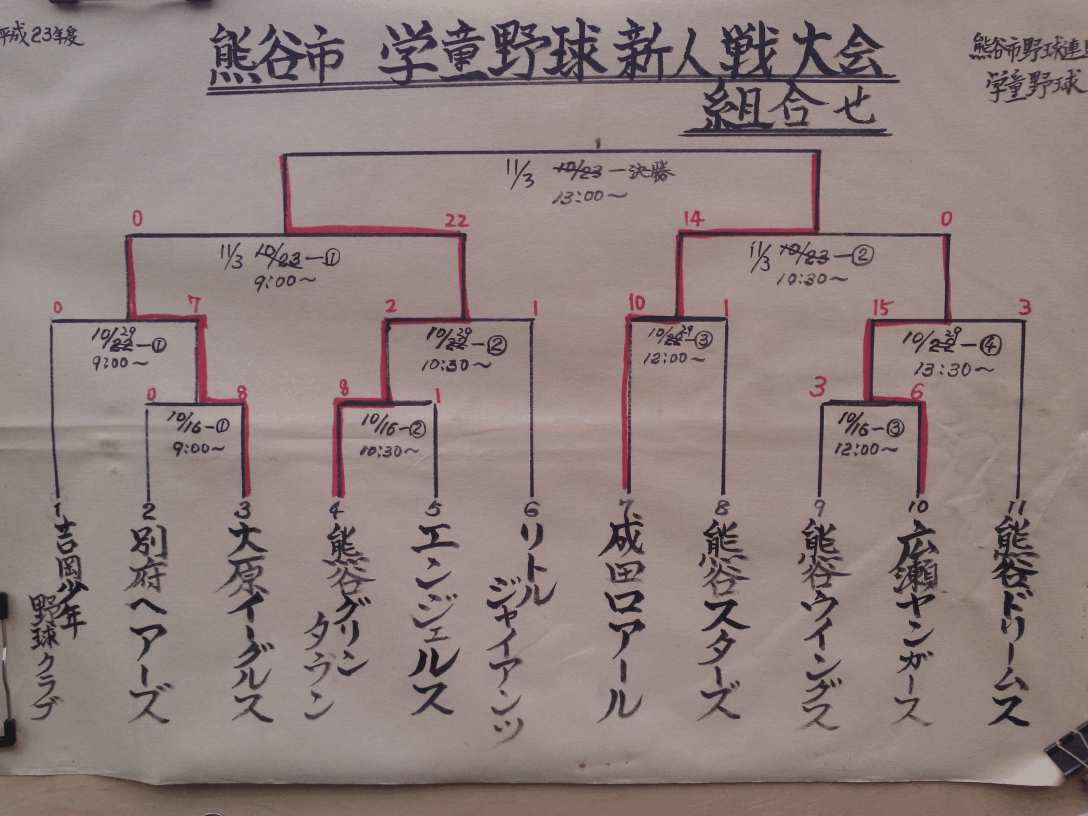 平成23年度
熊谷市 学童野球新人戦大会
組合せ
熊谷市野球連
学童野球
11/3 10/23-決勝
13:00〜
0 22 14 0
11/3 10/23-①
9:00〜
11/3 10/23-②
10:30〜
0 7 2 1 10 1 15 3
10/22 29-①
9:00〜
10/22 29-②
10:30〜
10/22 29-③
12:00〜
10/22 29-④
13:30〜
0 8 8 1 3 6
10/16-①
9:00〜
10/16-②
10:30〜
10/16-③
12:00〜
1 吉岡少年
野球クラブ
2 別府ベアーズ
3 大原イーグルス
4 熊谷グリン
タウン
5 エンジェルス
6 リトル
ジャイアンツ
7 成田ロアール
8 熊谷スターズ
9 熊谷ウイングス
10 広瀬ヤンガース
11 熊谷ドリームス